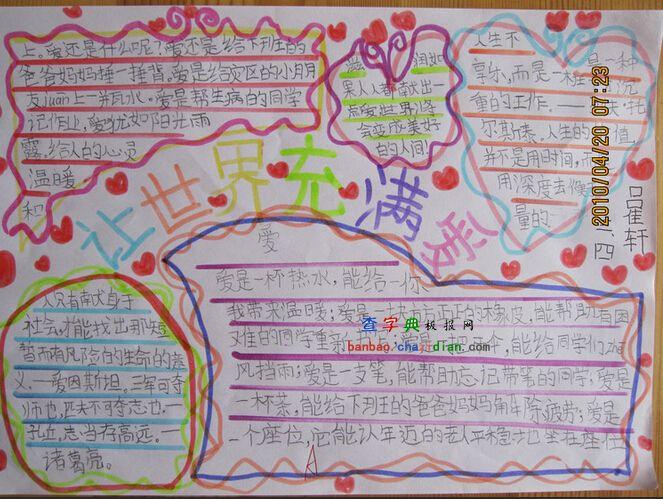 上。爱还是什么呢？爱还是给下班的
爸爸妈妈捶一捶背。爱是给灾区的小朋
友juan上一并瓦水。爱是帮生病的同学
记作业，爱犹如阳光雨
露，给人的心灵
温暖
和
果人人都献出一
点爱，世界将
会变成美好
的人间！
人生不是一种
享乐，而是一桩沉
重的工作。——托
尔斯泰。人生的价值，
并不是用时间，而
用深度去衡
量的
2010/04/20 07:23
四
吕崔轩
让世界充满爱
爱
爱是一杯热水，能给一你
我带来温暖；爱是能帮助有困
难的同学重能给同学们遮
风挡雨；爱是一支笔，能帮助忘记带笔的同学；爱是
一杯茶，能给下班的爸爸妈妈解除疲劳；爱是
一个座位，它能让年迈的老人平稳地坐在座位
查字典板报网
banbao.chazidian.com
人只有献身于
社会，才能找出那短
暂而有风险的生命的意
义——爱因斯坦。三军可夺
帅也，匹夫不可夺志也。一
孔丘，志当存高远。一
诸葛亮。
A